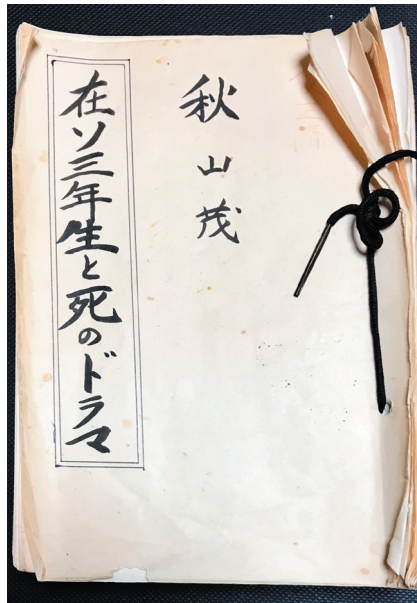 秋山茂
在ソ三年生と死のドラマ